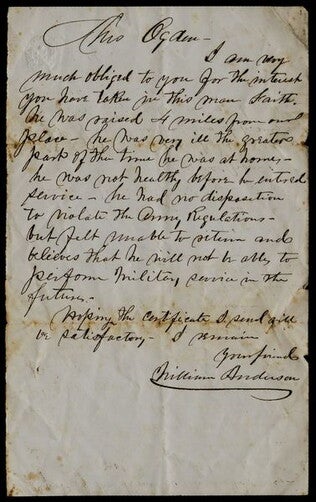 Mrs Ogden -
I am very
much obliged to you for the interest
you have taken in this man Faith.
he was raised 4 miles from our
place - he was very ill the greater
part of the time he was at home, -
he was not healthy before he entered
service - he had no disposition
to violate the Army Regulations -
but felt unable to return and
believes that he will not be able to
perform Military service in the
future, -
Hoping the certificate I send will
be satisfactory - I remain
Your friend
William Anderson